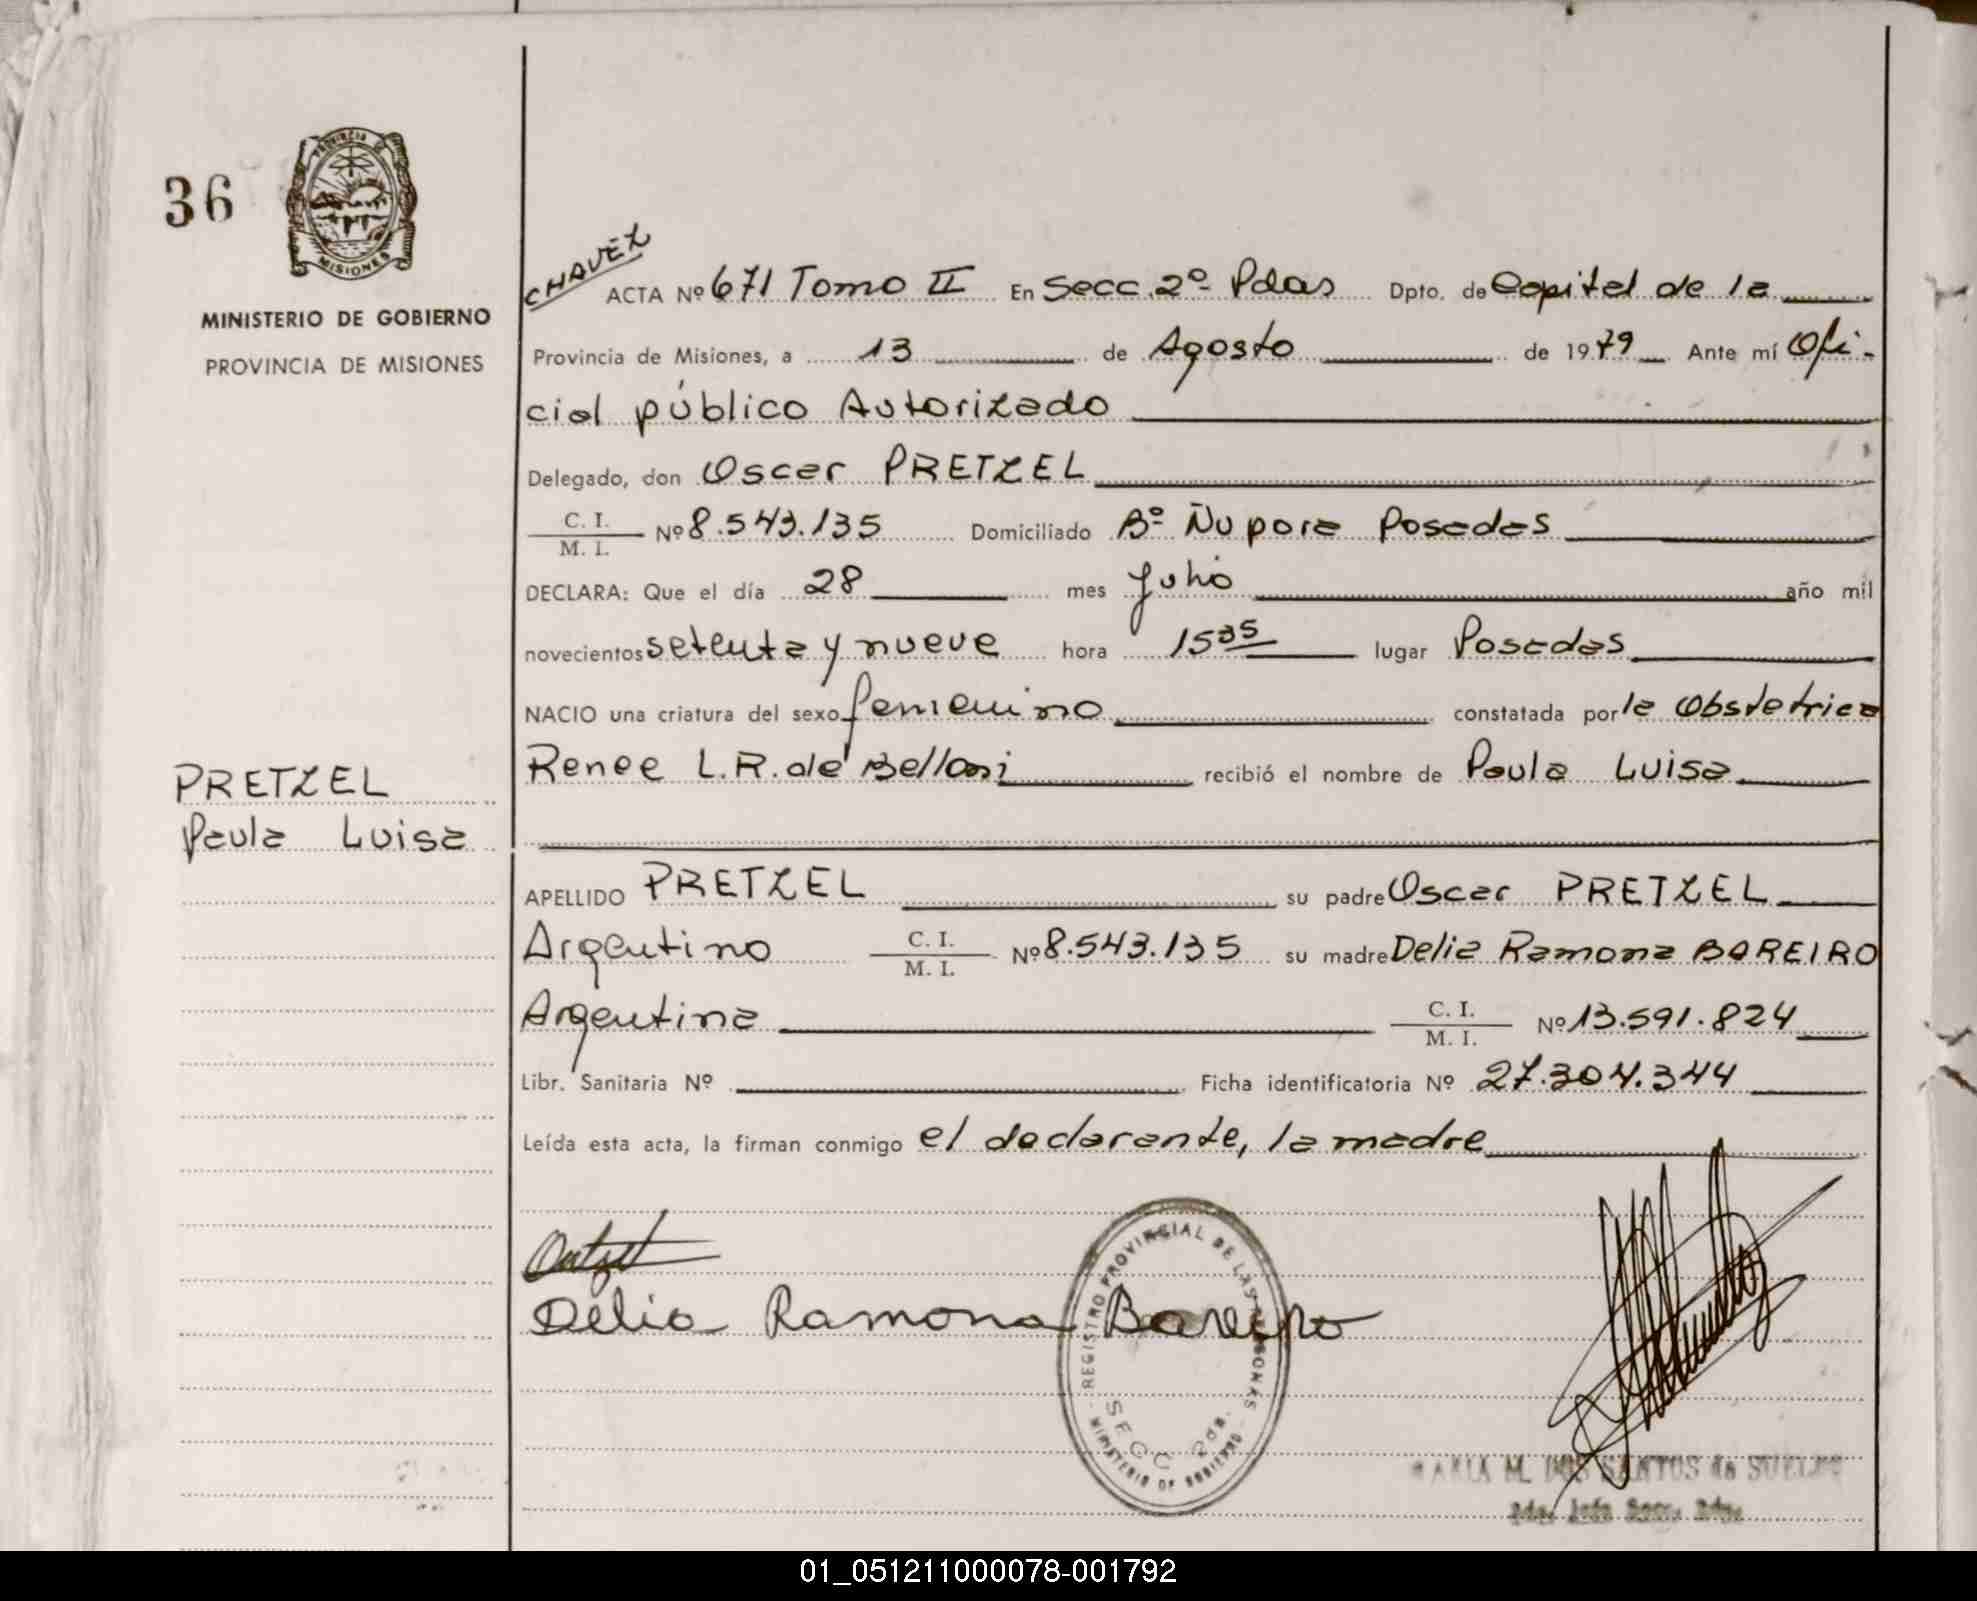 36
PROVINCIA DE
MISIONES
MINISTERIO DE GOBIERNO
PROVINCIA DE MISIONES
PRETZEL
Paula Luisa
CHAVEZ
ACTA Nº 671 Tomo II En Secc. 2º Pdas Dpto. de Capital de la
Provincia de Misiones, a 13 de Agosto de 1979 Ante mí Ofi-
cial público Autorizado
Delegado, don Oscar PRETZEL
C. I.
M. I. Nº 8.543.135 Domiciliado Bº Ñu pora Posadas
DECLARA: Que el día 28 mes Julio año mil
novecientos setenta y nueve hora 15 35 lugar Posadas
NACIO una criatura del sexo femenino constatada por la Obstetrica
Renee L.R. de recibió el nombre de Paula Luisa
APELLIDO PRETZEL su padre Oscar PRETZEL
Argentino C. I.
M. I. Nº 8.543.135 su madre Delia Ramona BAREIRO
Argentina C. I.
M. I. Nº 13.591.824
Libr. Sanitaria Nº Ficha identificatoria Nº 27.304.344
Leída esta acta, la firman conmigo el declarante, la madre
Delia Ramona Bareiro
REGISTRO PROVINCIAL DE LAS PERSONAS
SECC 2da.
MINISTERIO DE GOBIERNO
MARIA M. DOS SANTOS de
01_051211000078-001792